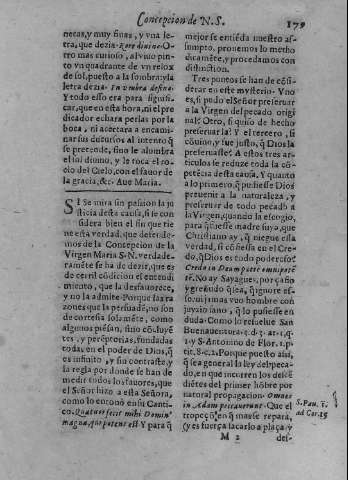 Concepcion de N. S.
179
necas, y muy finas, y vna letra, que dezia. Rore diuino. Otro
mas curioso, al viuo pinto
vn quadrante de vn relox
de sol, puesto a la sombra; y la
letra dezia. In vmbra desino.
Y todo esso era para significar,
que en esta hora, ni el predicador
echara perlas por la
boca, ni acertara a encaminar
sus discursos al intento que
se pretende, sino le alumbra
el sol diuino, y le toca el rocio
del Cielo, con el fauor de
la gracia, &c. Aue Maria.
SI se mira sin passion la justicia
desta causa, si se considera
bien el sin que tiene
esta verdad, que defendemos
de la Concepcion de la
Virgen Maria S. N. verdaderamẽte
se ha de dezir, que es
de cerril cõdicion el entendimiento,
que la desfauorece,
y no la admite. Porque las razones
que la persuadẽ, no son
de cortesia solamẽte, como
algunos piẽsan, sino cõcluyẽtes,
y perẽptorias, fundadas
todas en el poder de Dios, q̃
es infinito, y su contraste, y
la regla por donde se han de
medir todos los fauores, que
el Señor hizo a esta Señora,
como lo entonò en su Cantico.
Quia fecit mihi Domin'
magna, qui potens est. Y para q̃
mejor se entiẽda nuestro assumpto,
prouemos lo methodicamẽte,
y procedamos con
distinction.
Tres puntos se han de cõsiderar
en este mysterio. Vno
es, si pudo el Señor preseruar
a la Virgen del pecado original?
Otro, si quiso de hecho
preseruarla? Y el tercero, si
cõuino, y fue justo, q̃ Dios la
preseruasse? A estos tres articulos
se reduze toda la cõpetẽcia
desta causa. Y quanto
a lo primero, q̃ pudiesse Dios
preuenir a la naturaleza, y
preseruar de todo pecado a
la Virgen, quando la escogio,
para q̃ fuesse madre suya, que
Christiano ay, q̃ niegue esta
verdad, si cõfiessa en el Credo,
q̃ Dios es todo poderoso?
Credo in Deum patrẽ omnipotẽtẽ.
No ay Sayagues, por çafio
y gressudo q̃ sea, q̃ ignore esso,
ni jamas veo hombre con
juyzio sano, q̃ lo pusiesse en
duda. Como lo resuelue San
Buenauentura. 3. d. 3. ar. 1. q.
1. y S. Antonino de Flor. 1. p.
tit. 8. c. 2. Porque puesto assi,
q̃ sea general la ley del pecado,
en que incurren los decẽdiẽtes
del primer hõbre por
natural propagacion. Omnes
in Adam peccauerunt. Que el
tropeçõ, en q̃ massse repara,
(y es fuerça sacarlo a plaça, y
S. Pau. 1.
ad Cor. 15
M 2
des-